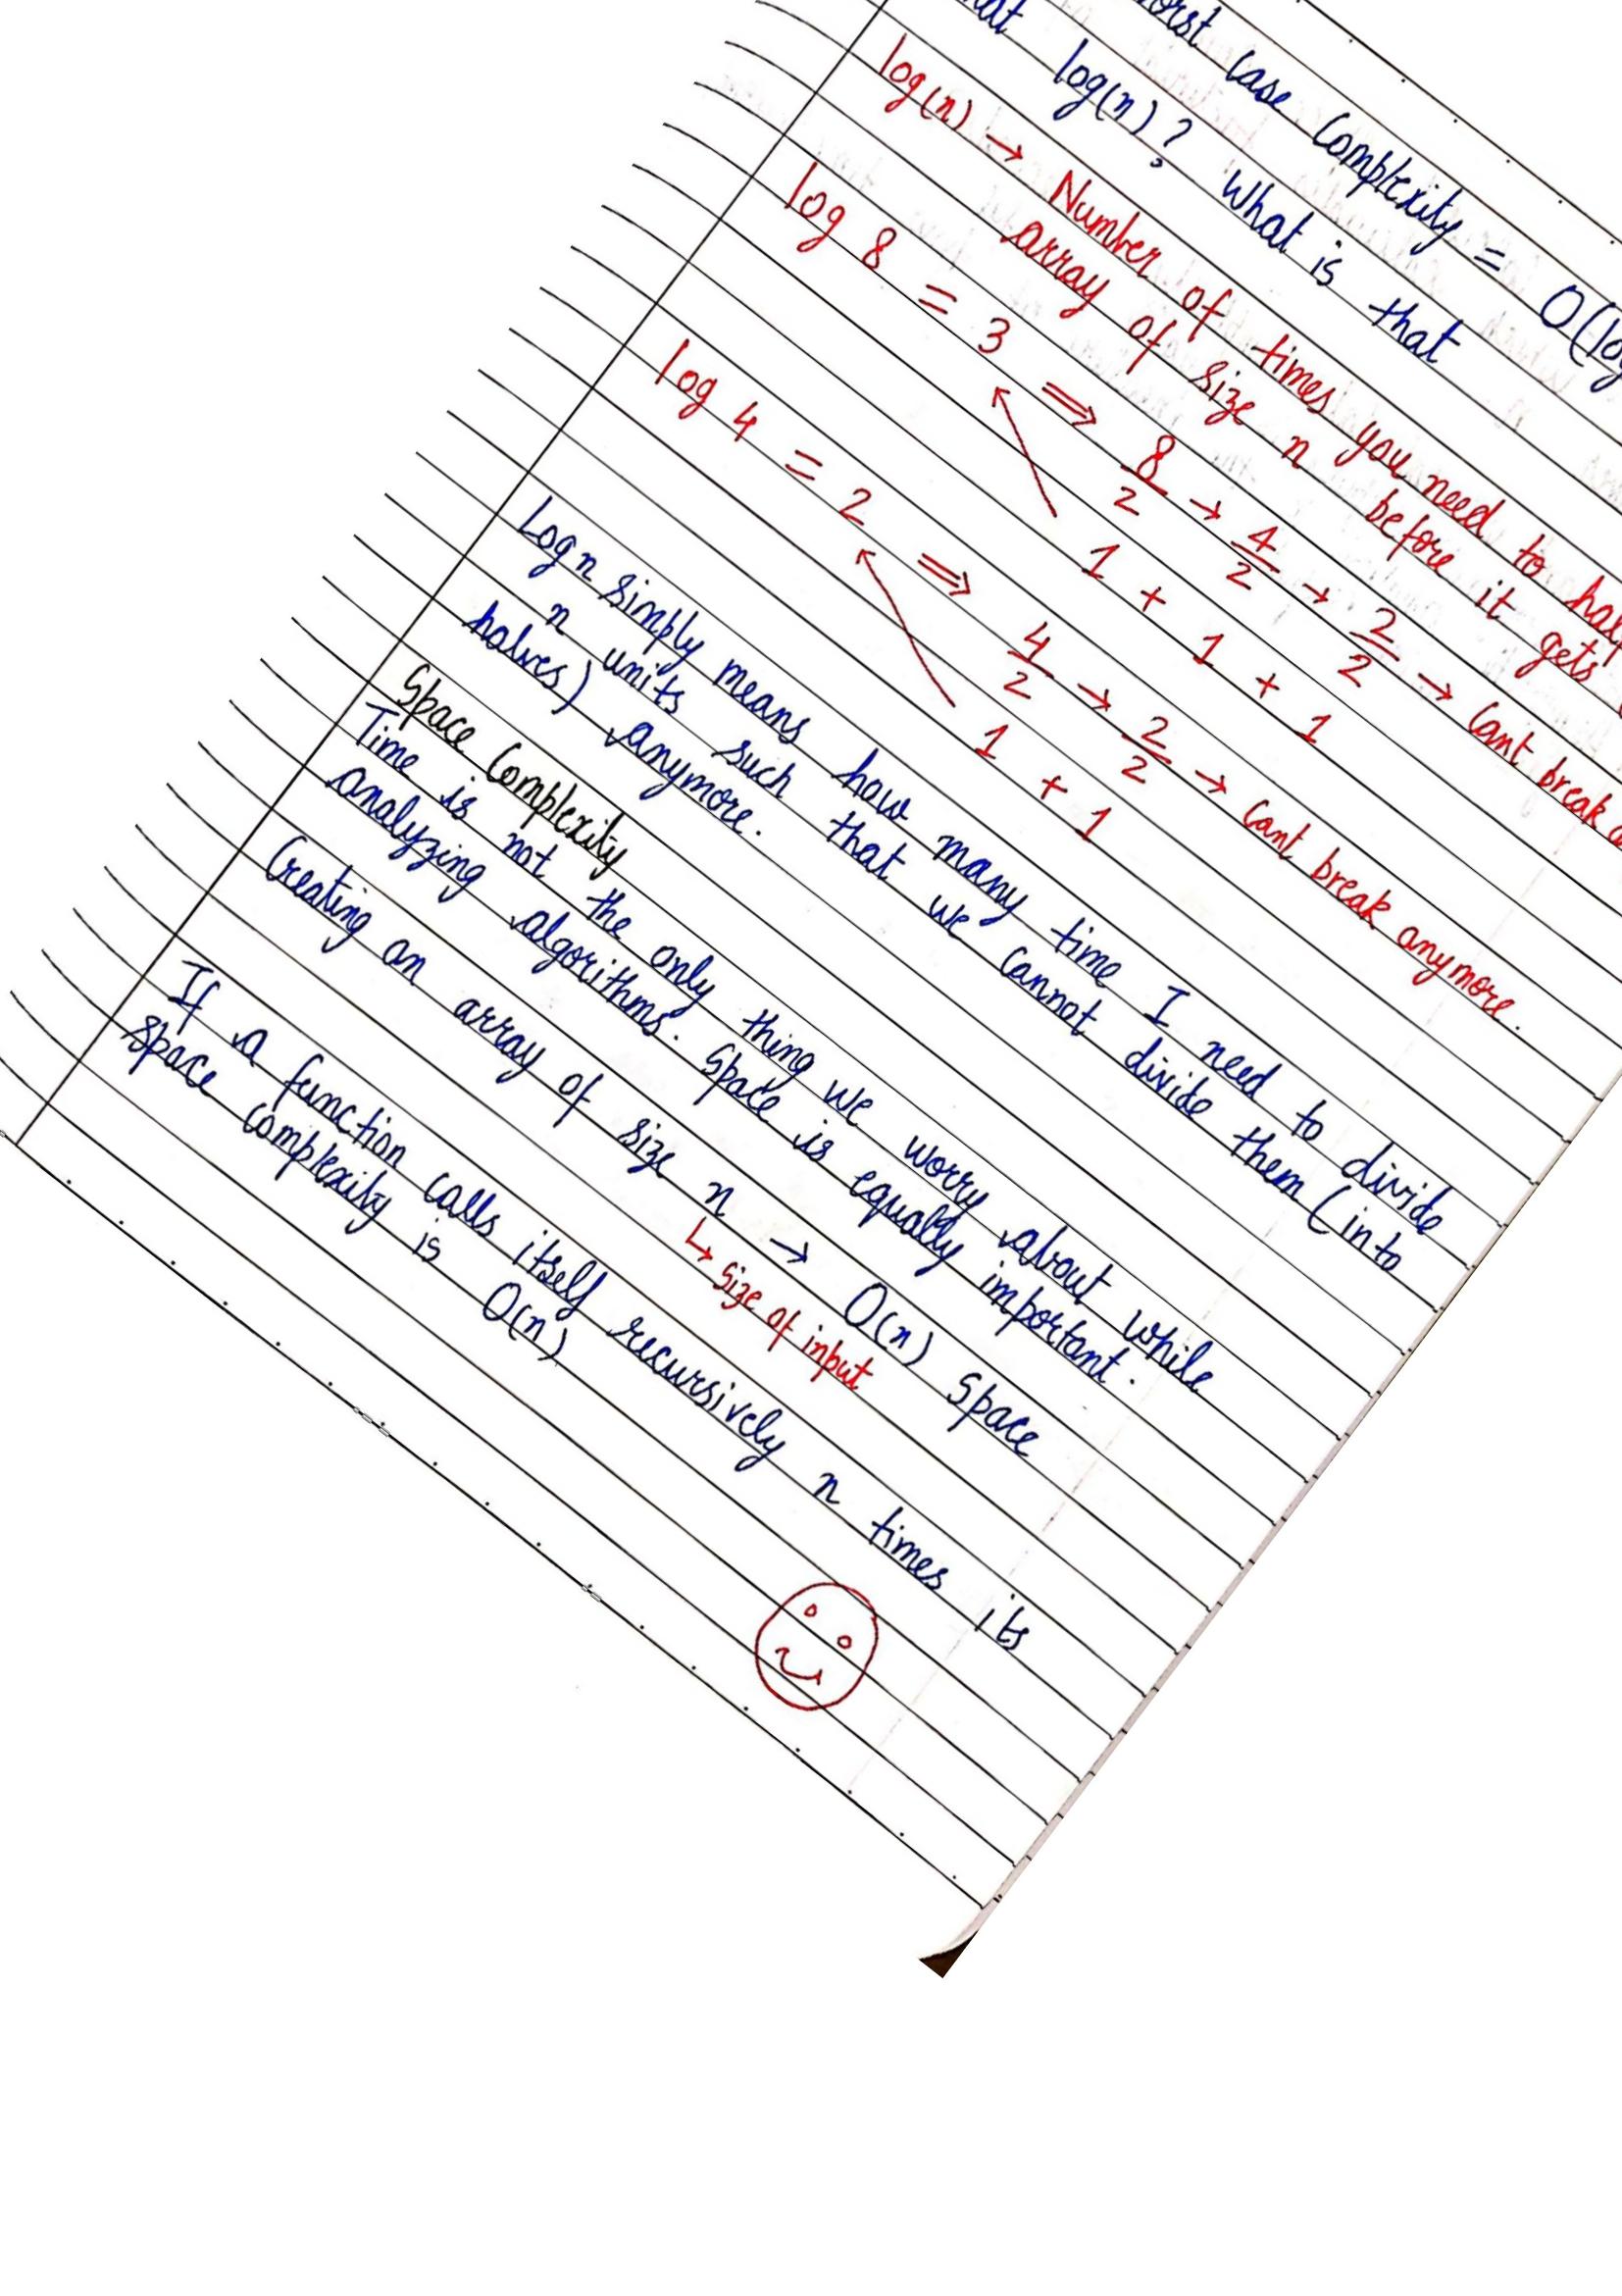 orst case Complexity = O(log
log(n)? What is that
log(n) → Number of times you need to half
array of size n before it gets
log 8 = 3 ⇒ 8/2 → 4/2 → 2/2 → Cant break a
1 + 1 + 1
log 4 = 2 ⇒ 4/2 → 2/2 → Cant break anymore.
1 + 1
Log n simply means how many time I need to divide
n units such that we cannot divide them (into
halves) anymore.
Space Complexity
Time is not the only thing we worry about while
analyzing algorithms. Space is equally important.
Creating an array of size n → O(n) Space
↳ Size of input
If a function calls itself recursively n times its
space complexity is O(n)